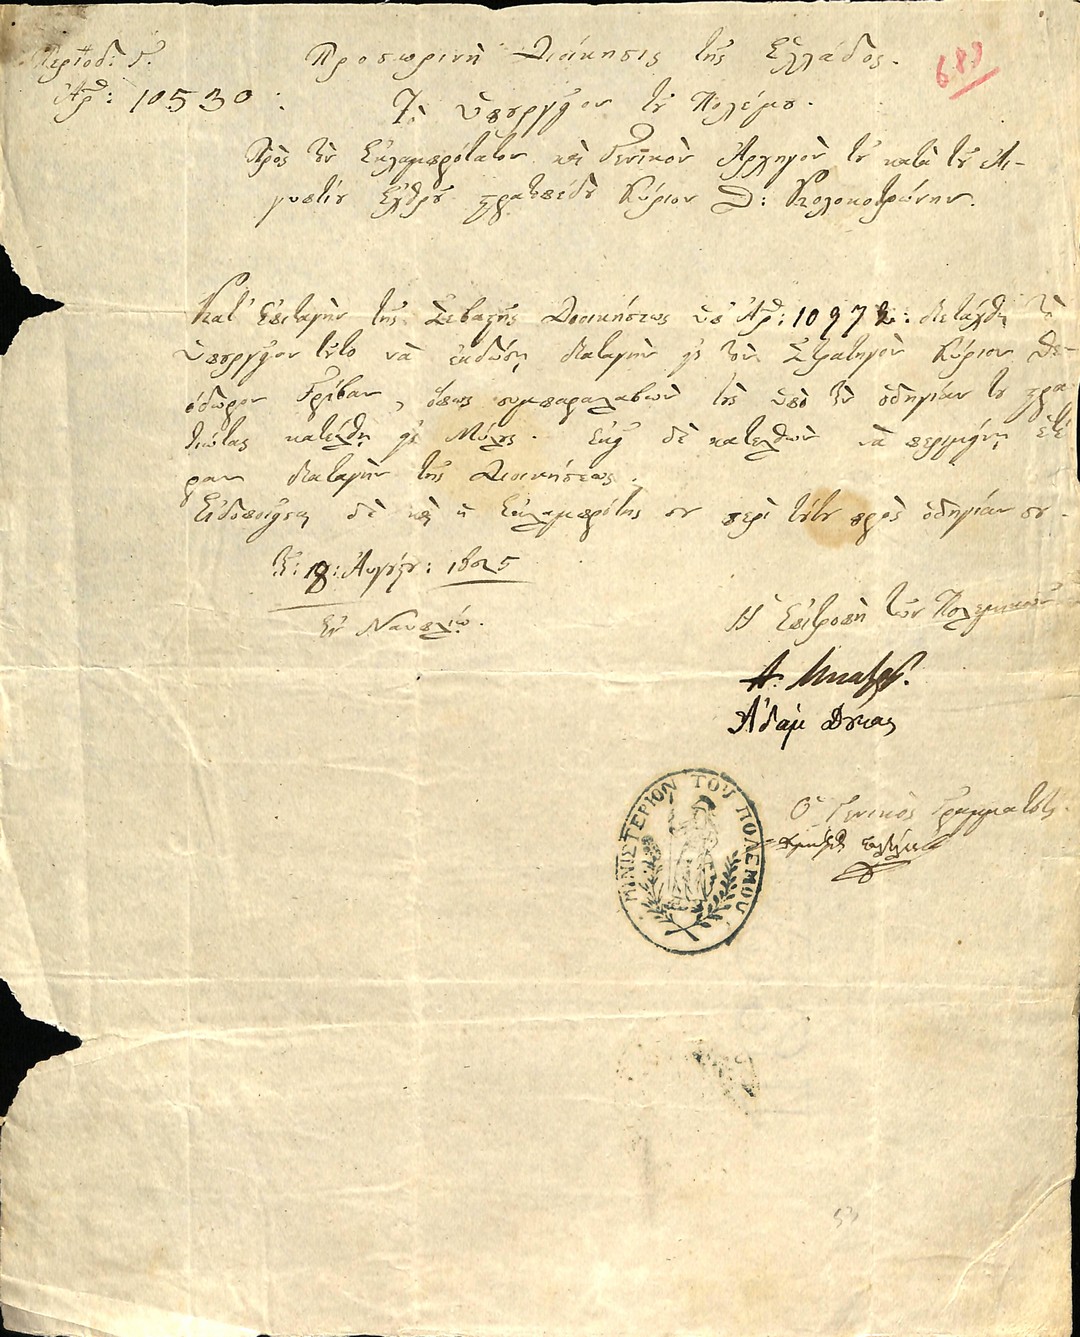 Περίοδ: Γ΄.
Ἀρθ: 10530.
Προσωρινὴ Διοίκησις τῆς Ἑλλάδος.
689
Τὸ ὑπουργεῖον τοῦ Πολέμου.
Πρὸς τὸν Ἐκλαμπρότατον καὶ Γενικὸν Ἀρχηγὸν τοῦ κατὰ τῶν Αἰ-
γυπτίων Ἑλληνικοῦ στρατοπέδου Κύριον Θ: Κολοκοτρώνην.
Κατ' ἐπιταγὴν τῆς Σεβαστῆς Διοικήσεως ὑπ' Ἀρθ: 10972: διετάχθη τὸ
ὑπουργεῖον τοῦτο νὰ ἐκδώσῃ διαταγὴν εἰς τὸν Στρατηγὸν Κύριον Θε-
όδωρον Γρίβαν, ὅπως συμπαραλαβὼν τοὺς ὑπὸ τὴν ὁδηγίαν του στρα
τιώτας κατέλθῃ εἰς Μύλους. Ἐκεῖ δὲ κατελθὼν νὰ περιμένῃ ἑτέ
ραν διαταγὴν τῆς Διοικήσεως.
Εἰδοποιεῖται δὲ καὶ ἡ Ἐκλαμπρότης σου περὶ τούτου πρὸς ὁδηγίαν σου.
Τῇ: 18: Αὐγούστου: 1825
Ἐν Ναυπλίῳ.
Ἡ Ἐπιτροπὴ τῶν Πολεμικῶν
Ἀδὰμ Δούκας
ΜΙΝΙΣΤΕΡΙΟΝ ΤΟΥ ΠΟΛΕΜΟΥ
Ὁ Γενικὸς Γραμματεὺς